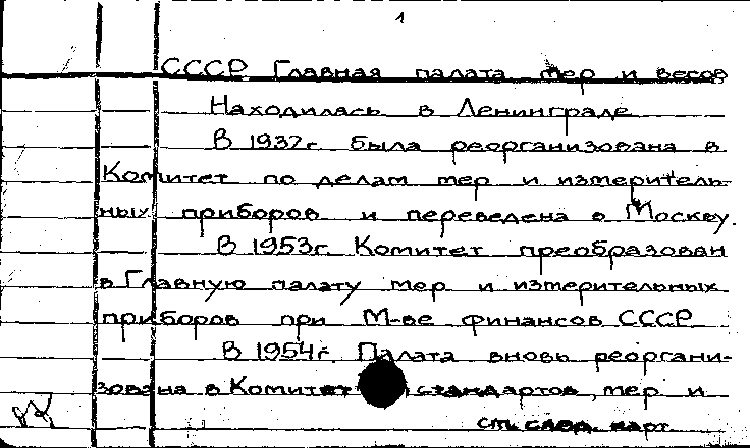 1
СССР Главная палата мер и весов
Находилась в Ленинграде
В 1937г. была реорганизована в
Комитет по делам мер и измеритель-
ных приборов и переведена в Москву.
В 1953г. Комитет преобразован
в Главную палату мер и измерительных
приборов при М-ве финансов СССР
В 1954г. Палата вновь реоргани-
зована в Комитет стандартов, мер и
см. след. карт.